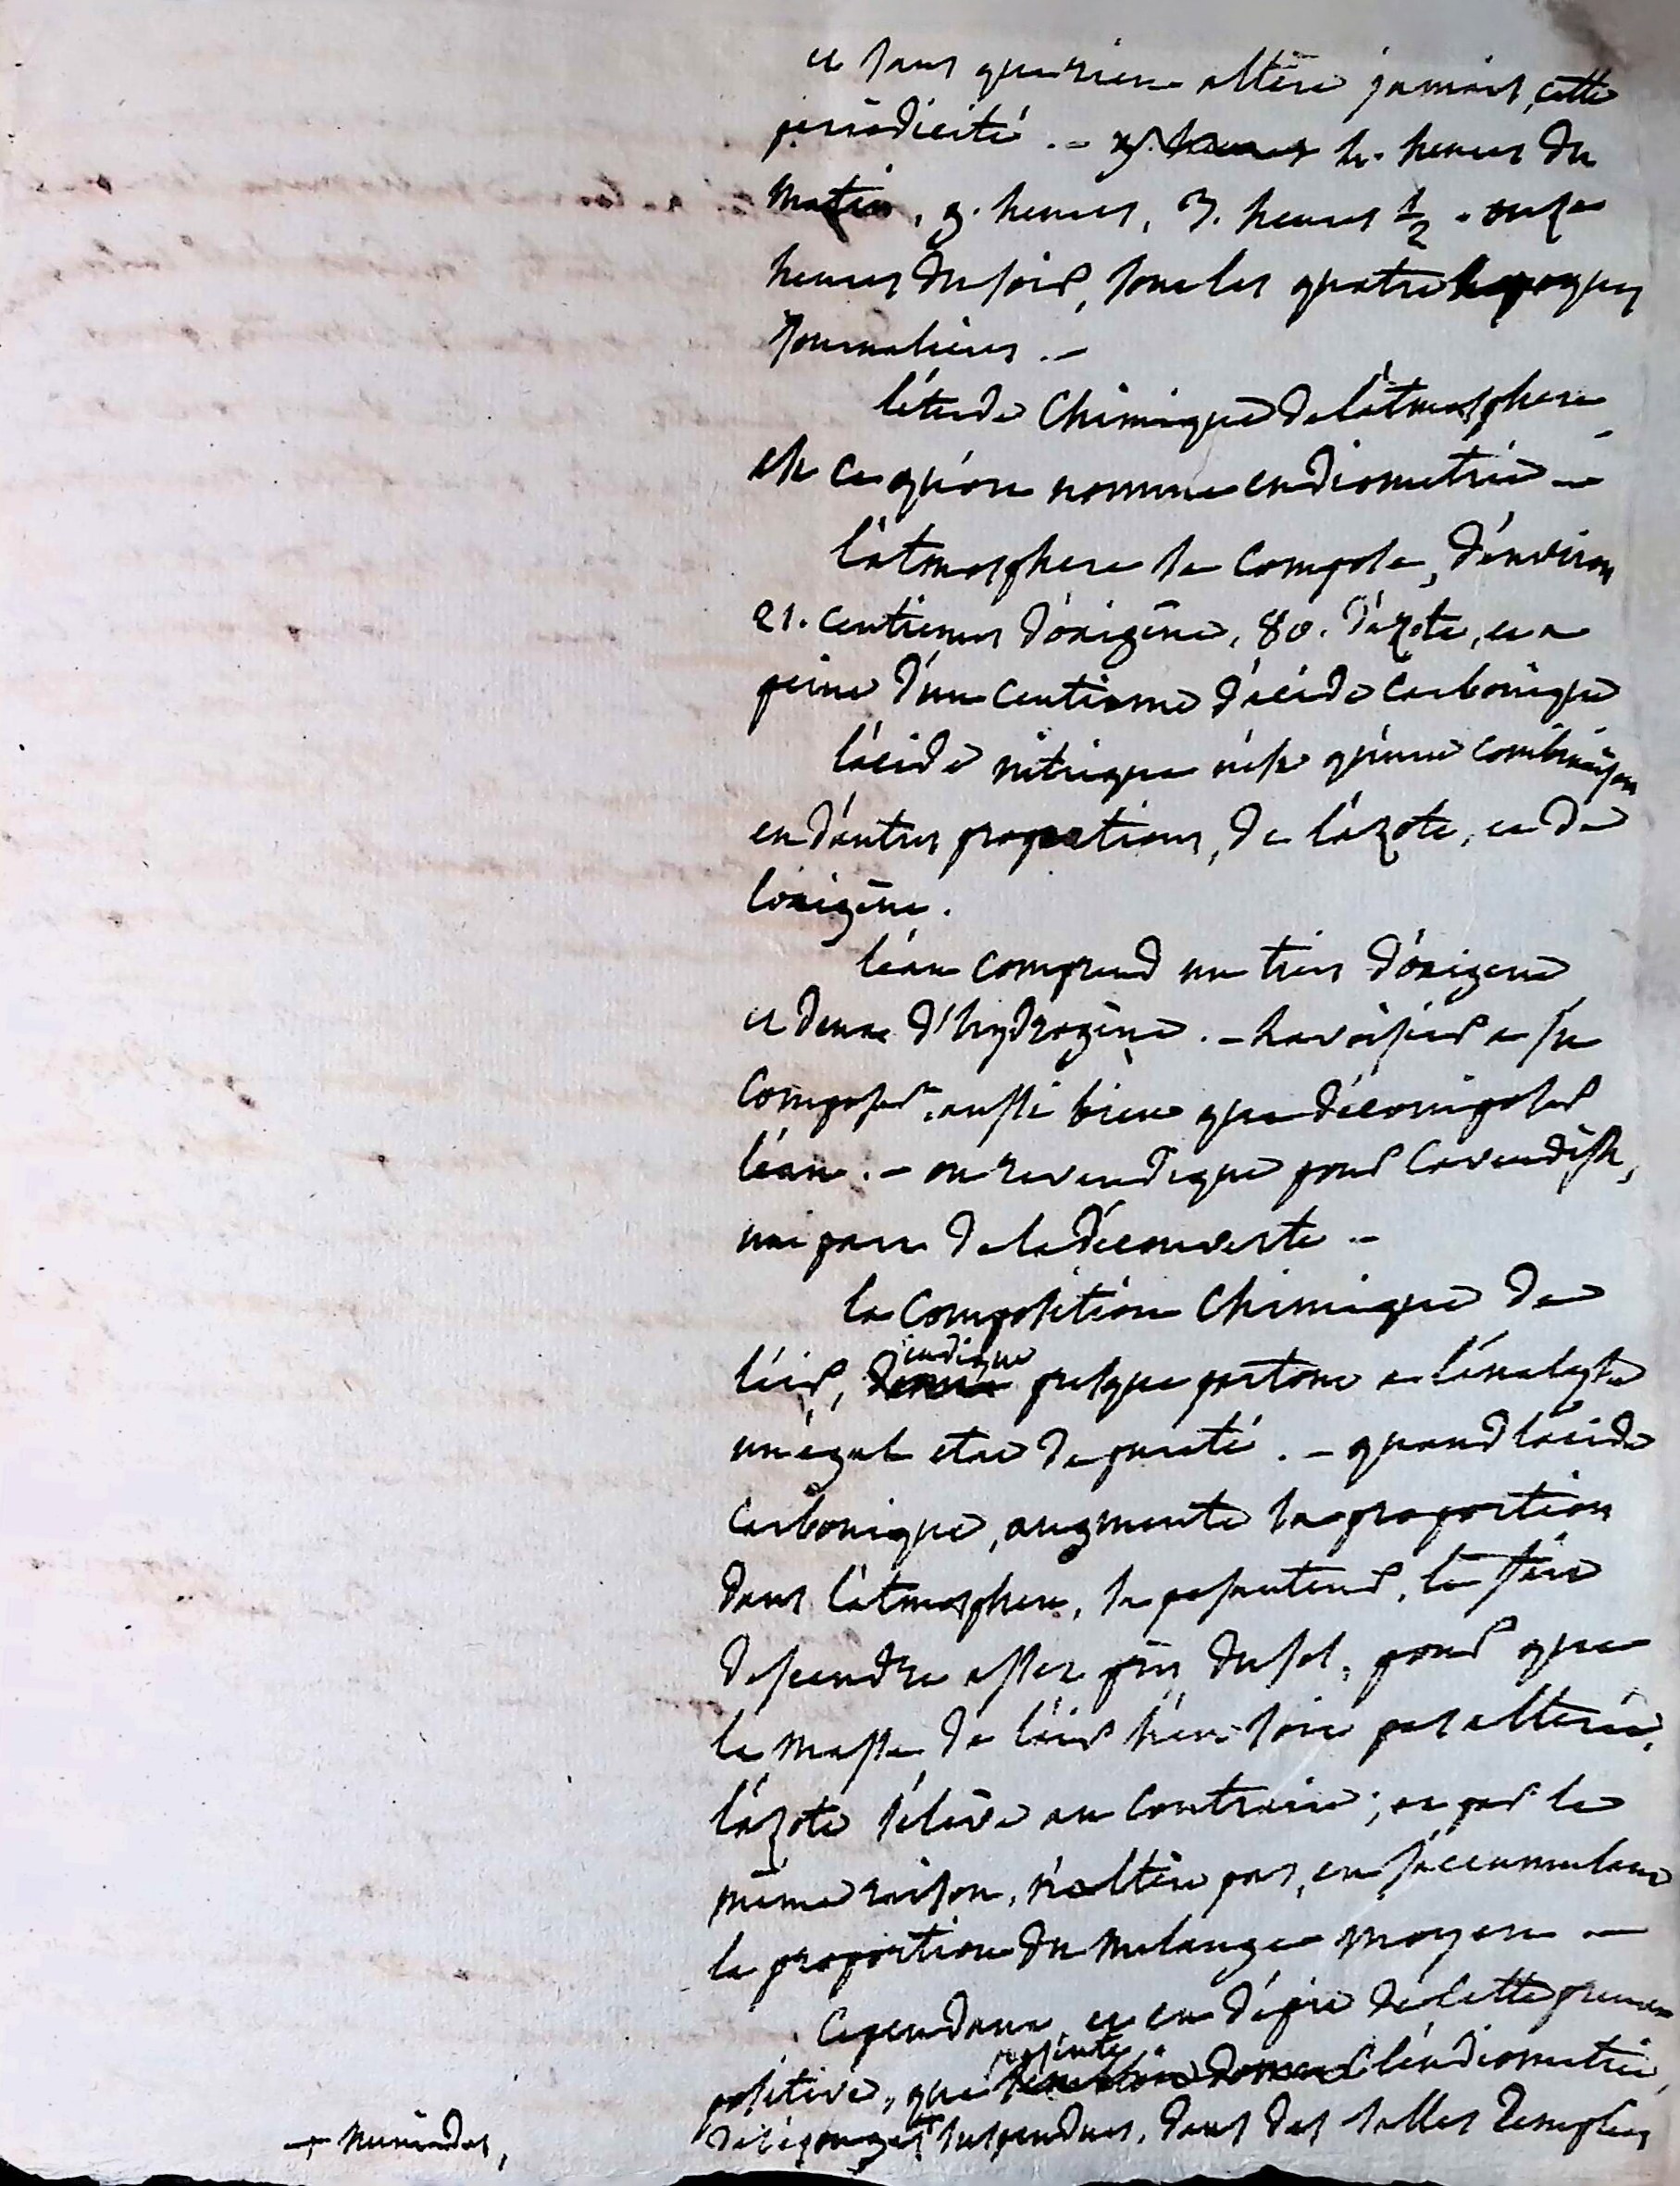 et sans que rien altère jamais, cette
périodicité. - h. heures du
matin, 9. heures, 3. heures 1/2 . onze
heures du soir, sont les quatre epoques
journalieres. -
l'étude Chimique de l'atmosphere
est ce qu'on nomme eudiometrie -
l'atmosphere se compose, d'environ
21. centiemes d'oxigène, 80. d'azote, et a
peine d'un centieme d'acide carbonique
l'acide nitrique n'est qu'une combinaison
en d'autres proportions, de l'azote, et de
l'oxigène.
l'eau comprend un tiers d'oxigene
et deux d'hydrogène. - Lavoisier a su
composer aussi bien que décomposer
l'eau. - on revendique pour Cavendish,
une part de la découverte -
la composition Chimique de
l'air, indique presque partout a l'analyse
un egal etat de pureté. - quand l'acide
carbonique, augmente sa proportion
dans l'atmosphere, sa pesanteur, le fait
descendre assez près du sol, pour que
la masse de l'air n'en soit pas alterée,
l'azote s'élève au contraire; et par la
même raison, n'altère pas, en s'accumulant
la proportion du melange moyen -
Cependant, et en dépit de cette preuve
positive, que présente l'eudiometrie,
des éponges suspendues, dans des salles remplies
+ humides,